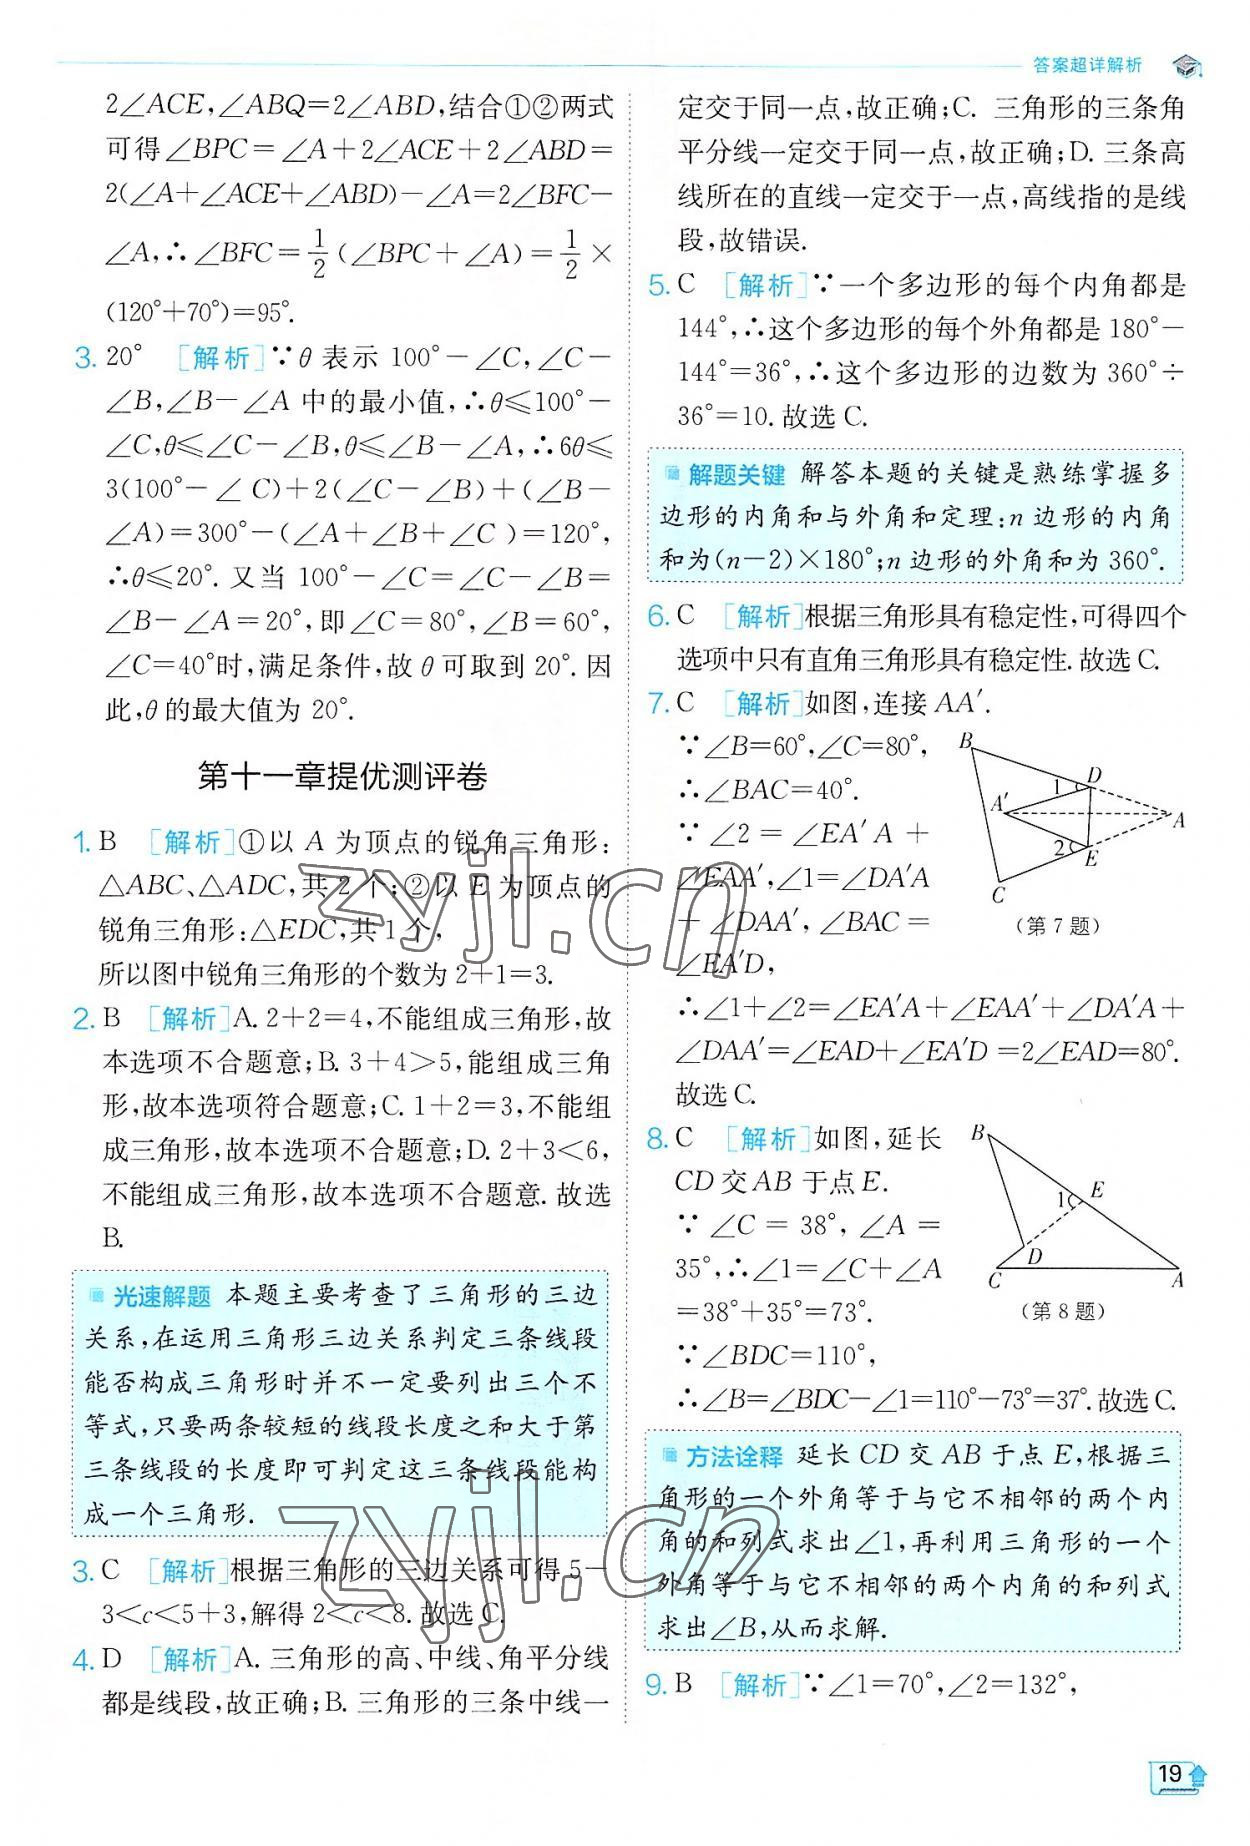 答案超详解析
2∠ACE,∠ABQ=2∠ABD,结合①②两式
可得∠BPC=∠A+2∠ACE+2∠ABD=
2(∠A+∠ACE+∠ABD)-∠A=2∠BFC-
∠A,∴∠BFC=1/2(∠BPC+∠A)=1/2×
(120°+70°)=95°.
3. 20° [解析]∵θ表示100°-∠C,∠C-
∠B,∠B-∠A中的最小值,∴θ≤100°-
∠C,θ≤∠C-∠B,θ≤∠B-∠A,∴6θ≤
3(100°-∠C)+2(∠C-∠B)+(∠B-
∠A)=300°-(∠A+∠B+∠C)=120°,
∴θ≤20°.又当100°-∠C=∠C-∠B=
∠B-∠A=20°,即∠C=80°,∠B=60°,
∠C=40°时,满足条件,故θ可取到20°.因
此,θ的最大值为20°.
第十一章提优测评卷
1. B [解析]①以A为顶点的锐角三角形:
△ABC、△ADC,共2个;②以E为顶点的
锐角三角形:△EDC,共1个,
所以图中锐角三角形的个数为2+1=3.
2. B [解析]A.2+2=4,不能组成三角形,故
本选项不合题意;B.3+4>5,能组成三角
形,故本选项符合题意;C.1+2=3,不能组
成三角形,故本选项不合题意;D.2+3<6,
不能组成三角形,故本选项不合题意.故选
B.
光速解题 本题主要考查了三角形的三边
关系,在运用三角形三边关系判定三条线段
能否构成三角形时并不一定要列出三个不
等式,只要两条较短的线段长度之和大于第
三条线段的长度即可判定这三条线段能构
成一个三角形.
3. C [解析]根据三角形的三边关系可得5-
3<c<5+3,解得2<c<8.故选C.
4. D [解析]A.三角形的高、中线、角平分线
都是线段,故正确;B.三角形的三条中线一
定交于同一点,故正确;C. 三角形的三条角
平分线一定交于同一点,故正确;D.三条高
线所在的直线一定交于一点,高线指的是线
段,故错误.
5. C [解析]∵一个多边形的每个内角都是
144°,∴这个多边形的每个外角都是180°-
144°=36°,∴这个多边形的边数为360°÷
36°=10.故选C.
解题关键 解答本题的关键是熟练掌握多
边形的内角和与外角和定理:n边形的内角
和为(n-2)×180°;n边形的外角和为360°.
6. C [解析]根据三角形具有稳定性,可得四个
选项中只有直角三角形具有稳定性.故选C.
7. C [解析]如图,连接AA′.
∵∠B=60°,∠C=80°,
∴∠BAC=40°.
∵∠2=∠EA′A+
∠EAA′,∠1=∠DA′A
+∠DAA′,∠BAC=
∠EA′D,
B
D
1
A′
A
2
E
C
(第7题)
∴∠1+∠2=∠EA′A+∠EAA′+∠DA′A+
∠DAA′=∠EAD+∠EA′D=2∠EAD=80°.
故选C.
8. C [解析]如图,延长
CD交AB于点E.
∵∠C=38°,∠A=
35°,∴∠1=∠C+∠A
=38°+35°=73°.
∵∠BDC=110°,
B
1
E
D
C
A
(第8题)
∴∠B=∠BDC-∠1=110°-73°=37°.故选C.
方法诠释 延长CD交AB于点E,根据三
角形的一个外角等于与它不相邻的两个内
角的和列式求出∠1,再利用三角形的一个
外角等于与它不相邻的两个内角的和列式
求出∠B,从而求解.
9. B [解析]∵∠1=70°,∠2=132°,
zyjl.cn
zyjl.cn
19